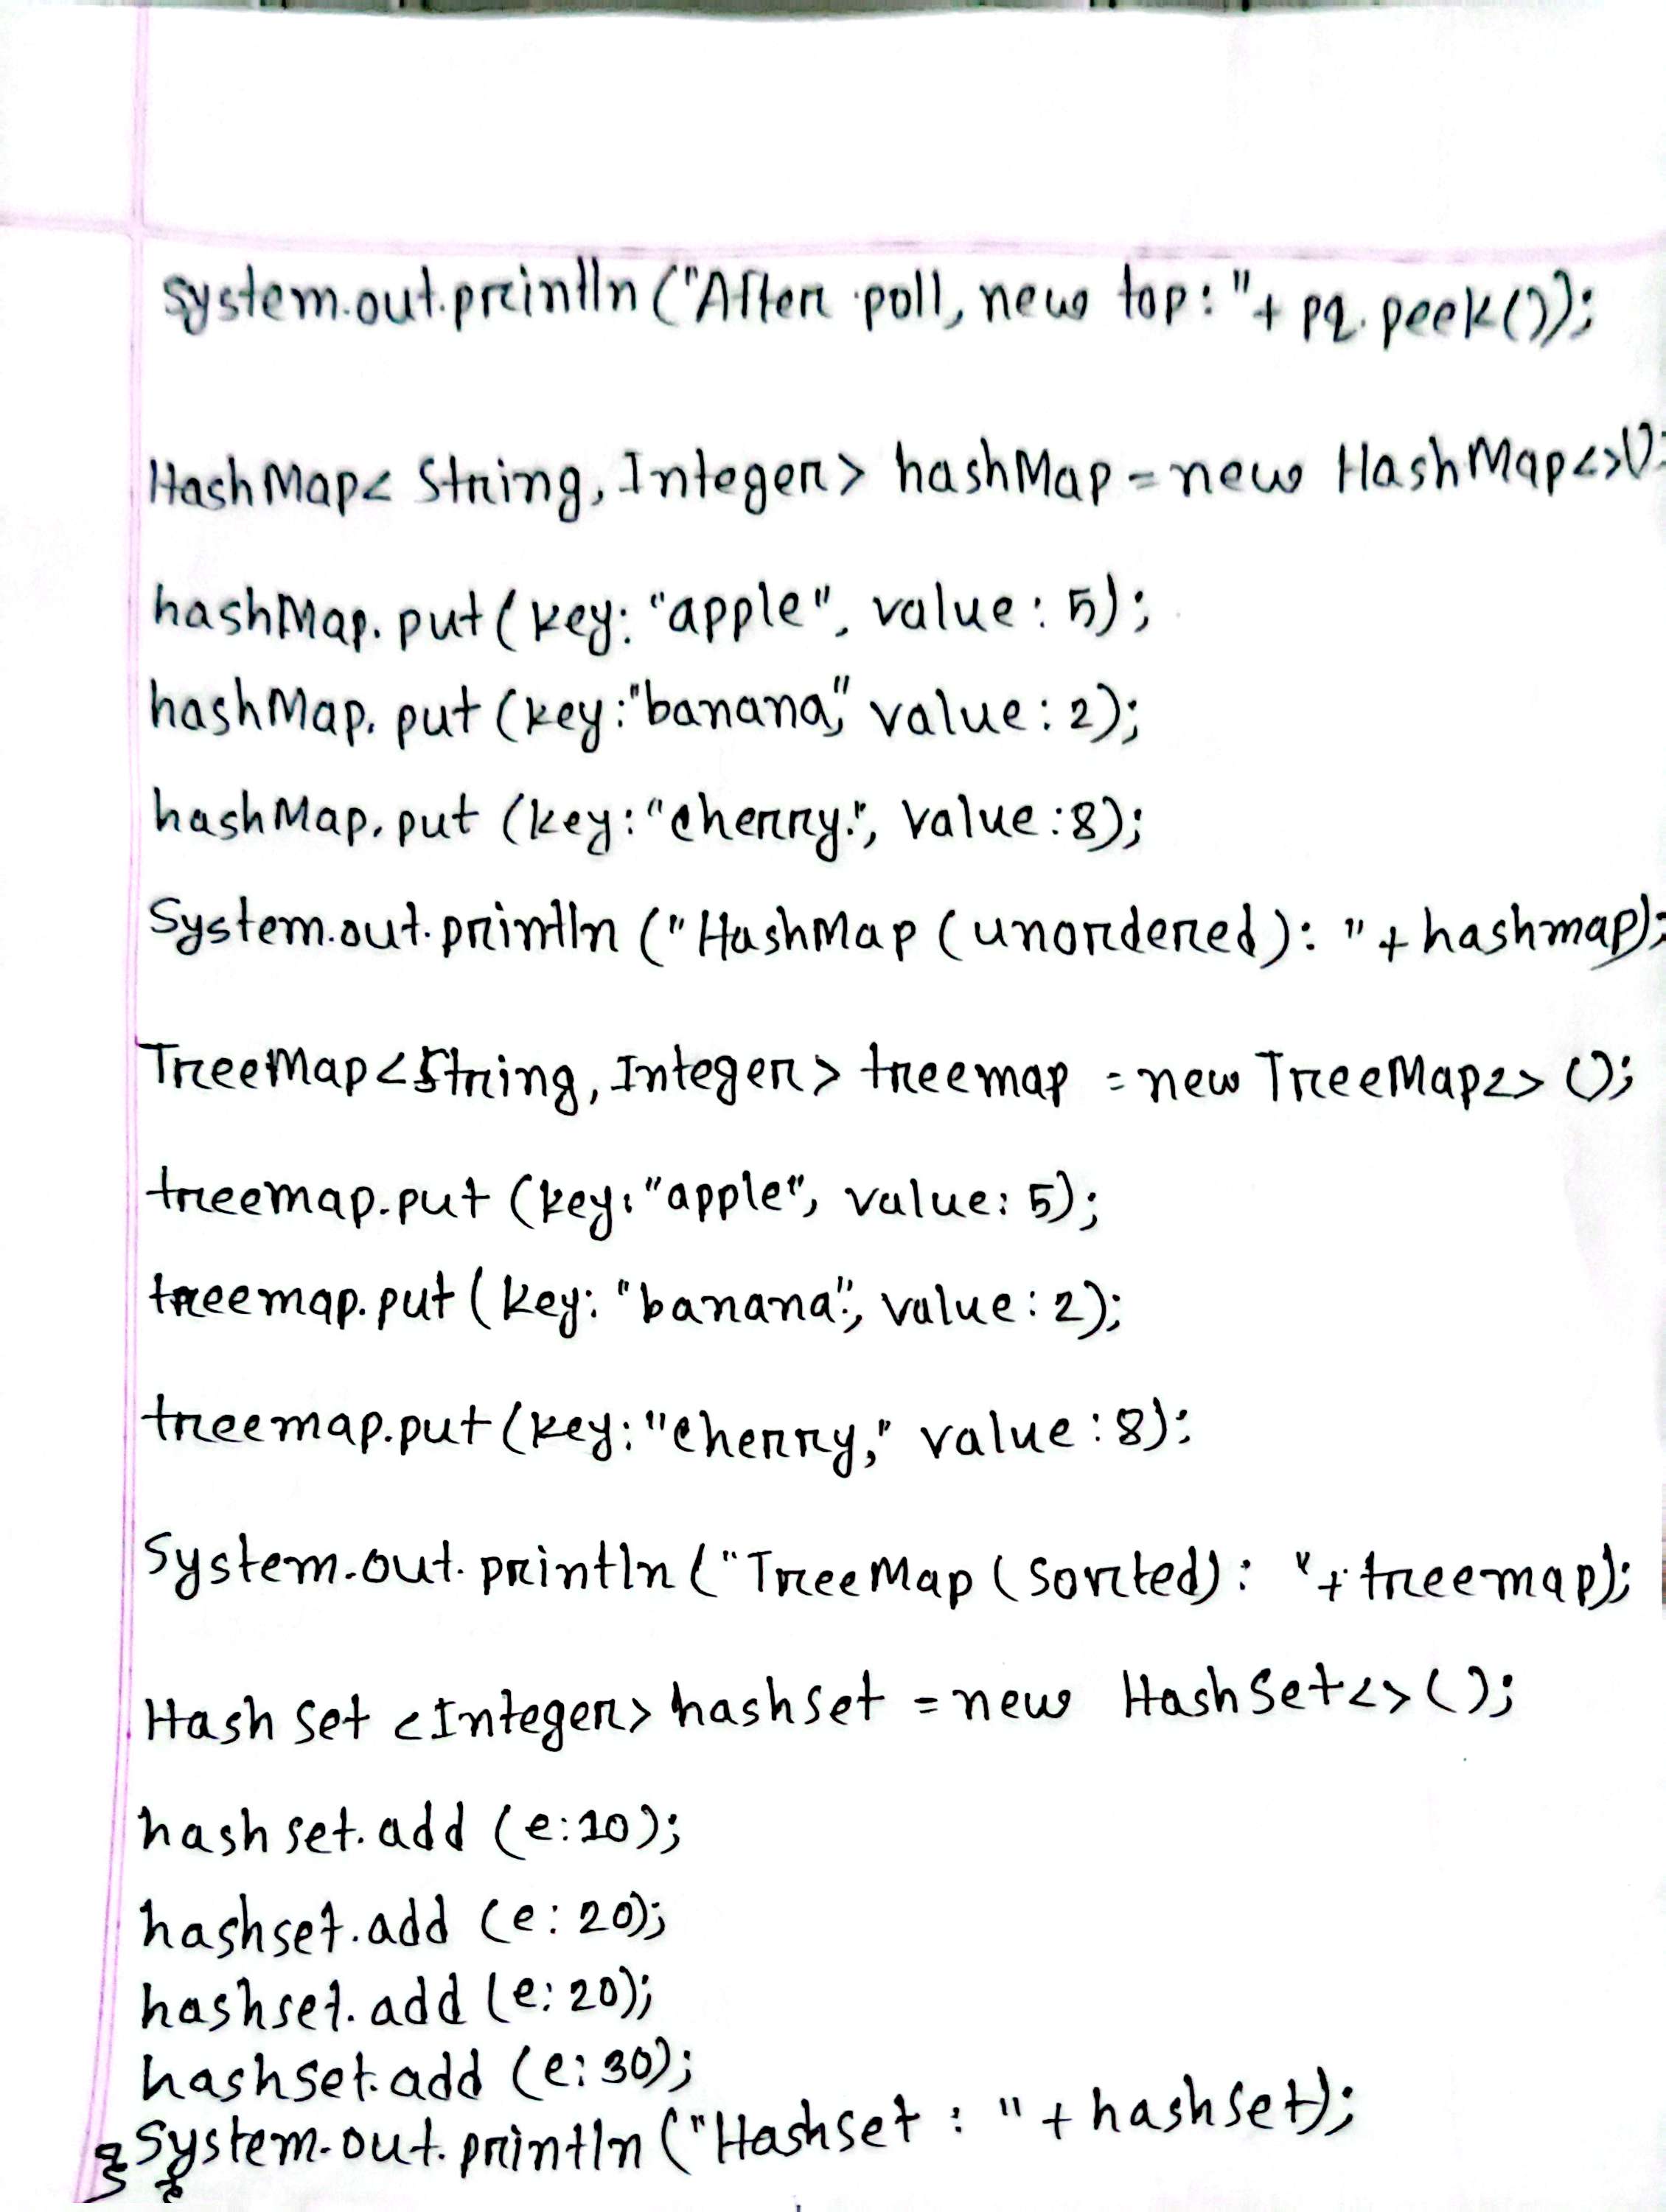 System.out.println("After poll, new top: "+ pq.peek());
HashMap< String, Integer> hashMap = new HashMap<>();
hashMap.put(key: "apple", value: 5);
hashMap.put(key: "banana", value: 2);
hashMap.put (key: "cherry", value: 8);
System.out.println ("HashMap (unordered): " + hashmap);
TreeMap<String, Integer> treemap = new TreeMap<> ();
treemap.put (key: "apple", value: 5);
treemap.put (key: "banana", value: 2);
treemap.put (key: "cherry," value: 8);
System.out.println ("TreeMap (sorted): " + treemap);
Hash Set <Integer> hashset = new HashSet<> ();
hashset.add (e:10);
hashset.add (e: 20);
hashset.add (e: 20);
hashset.add (e: 30);
System.out.println ("Hashset : " + hashset);
}